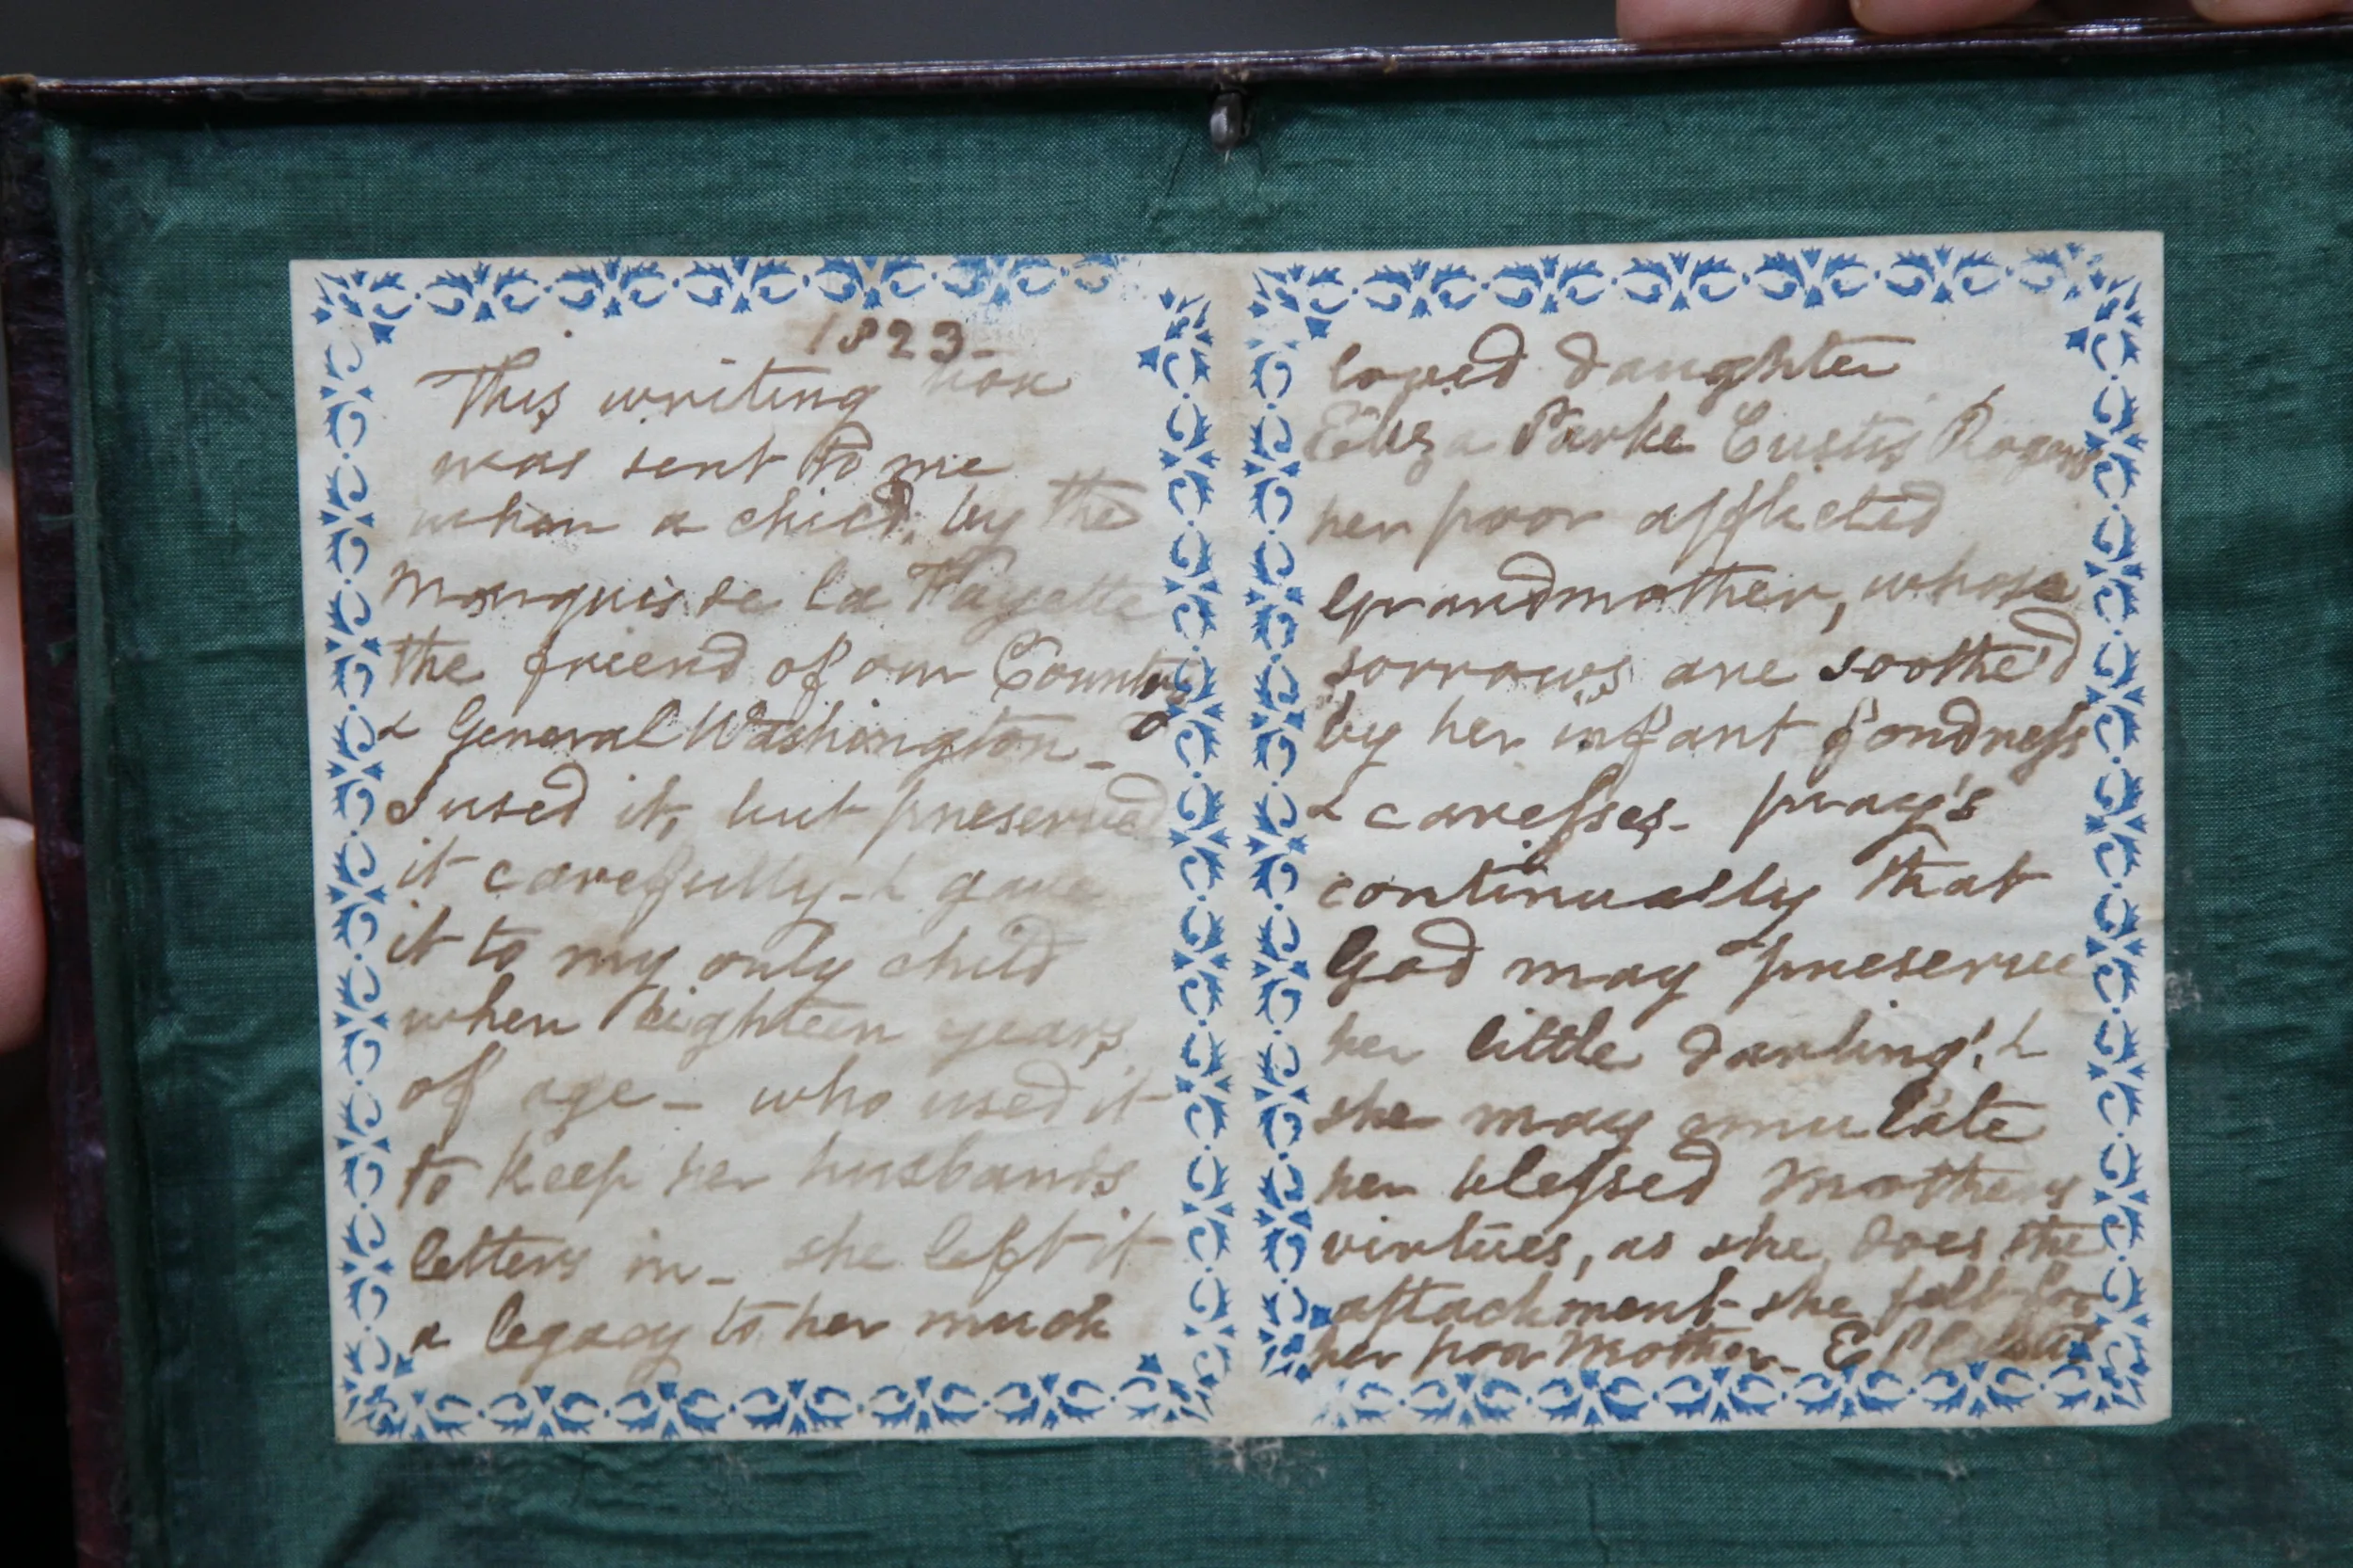 1823-
This writing box
was sent to me
when a child, by the
Marquis de la Fayette
the friend of our Country
& General Washington_
I used it, but preserved
it carefully_ & gave
it to my only child
when eighteen years
of age_ who used it
to keep her husbands
letters in_ she left it
a legacy to her much
loved daughter
Eliza Parke Custis Rogers
her poor afflicted
Grandmother, whose
sorrows are soothed
by her infant fondness
& caresses_ pray's
continually that
God may preserve
her little darling! &
she may emulate
her blessed Mothers
virtues, as she does the
attachment she felt for
her poor Mother_ E P Custis